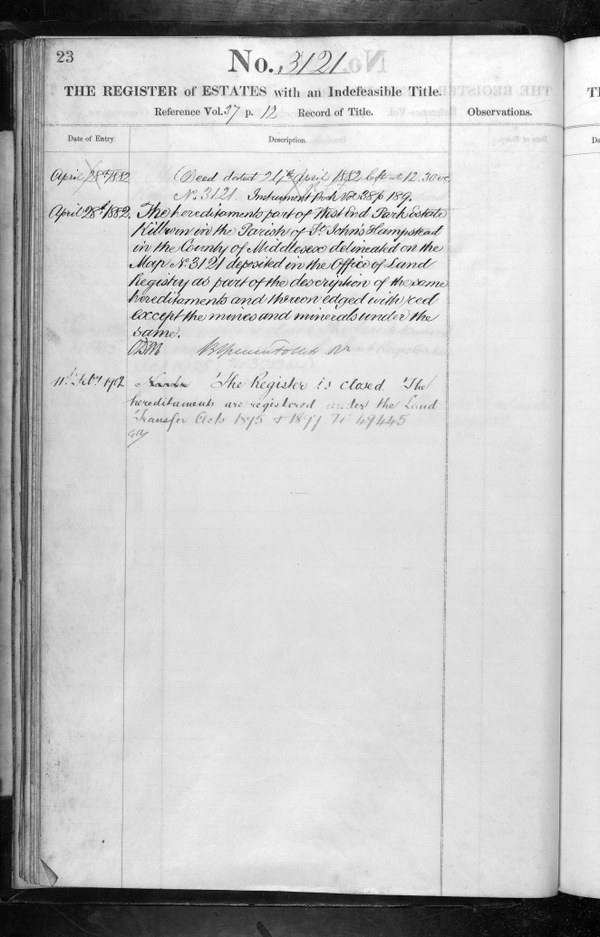 23
No. 3121
THE REGISTER of ESTATES with an Indefeasible Title.
Reference Vol. 37 p. 12 Record of Title.
Observations.
Date of Entry.
Description.
April 28th 1882
Deed dated 24th April 1882 left at 12.30
No. 3121. Instrument Book Vol 38 p 189.
April 28th 1882.
The hereditaments part of West End Park Estate
Kilburn in the Parish of St. John's Hampstead
in the County of Middlesex delineated on the
Map No. 3121 deposited in the Office of Land
Registry as part of the description of the same
hereditaments and thereon edged with red
except the mines and minerals under the
same.
11th Feby 1902
The Register is closed The
hereditaments are registered under the Land
Transfer Acts 1875 & 1897 Ti 49445